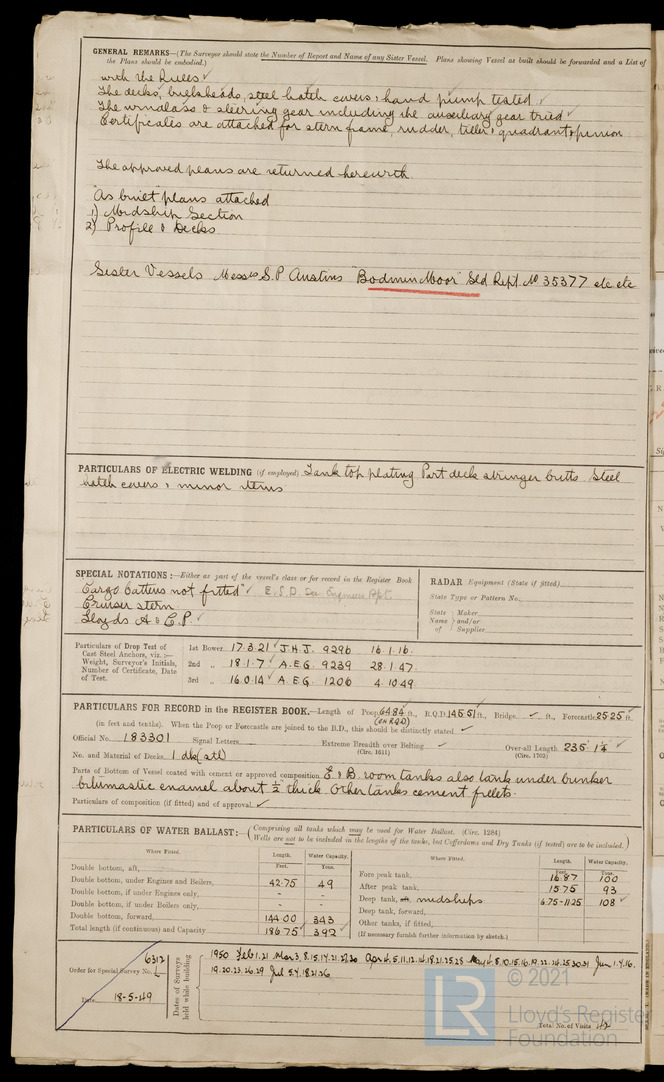 GENERAL REMARKS—(The Surveyor should state the Number of Report and Name of any Sister Vessel. Plans showing Vessel as built should be forwarded and a List of
the Plans should be embodied.)
with the Rules ✓
The decks, bulkheads, steel hatch covers & hand pump tested ✓
The windlass & steering gear including the auxiliary gear tried ✓
Certificates are attached for stern frame, rudder, tiller, quadrant & pinion
The approved plans are returned herewith.
"As built" plans attached
1) Midship Section
2) Profile & Decks
Sister Vessels Messrs S.P Austins "Bodmin Moor" Sld Rept No 35377 etc etc
PARTICULARS OF ELECTRIC WELDING (if employed) Tank top plating. Part deck stringer butts. Steel
hatch covers & minor items
SPECIAL NOTATIONS:—Either as part of the vessel's class or for record in the Register Book
"Cargo battens not fitted" ✓ E.S.D. See Engineers Rpt.
Cruiser stern
Lloyds A & C.P. ✓
RADAR Equipment (State if fitted)
State Type or Pattern No.
State Name of Maker and/or Supplier
Particulars of Drop Test of Cast Steel Anchors, viz.:— Weight, Surveyor's Initials, Number of Certificate, Date of Test.
1st Bower 17.3.21 ✓ J.H.J. 9296 16.1.16.
2nd „ 18.1.7 ✓ A.E.G. 9239 28.1.47.
3rd „ 16.0.14 ✓ A.E.G. 1206 4.10.49
PARTICULARS FOR RECORD in the REGISTER BOOK.—Length of Poop 64.84 ft., R.Q.D. 145.51 ft., Bridge ✓ ft., Forecastle 25.25 ft.
(ON RQD)
(in feet and tenths). When the Poop or Forecastle are joined to the B.D., this should be distinctly stated. ✓
Official No. 183301 Signal Letters Extreme Breadth over Belting ✓ (Circ. 1611) Over-all Length 235' 1¼" ✓ (Circ. 1703)
No. and Material of Decks 1 dk (stl)
Parts of Bottom of Vessel coated with cement or approved composition E. & B. room tanks also tank under bunker
bitumastic enamel about ½" thick. Other tanks cement fillets.
Particulars of composition (if fitted) and of approval ✓
PARTICULARS OF WATER BALLAST:— (Comprising all tanks which may be used for Water Ballast. (Circ. 1284)
Wells are not to be included in the lengths of the tanks, but Cofferdams and Dry Tanks (if tested) are to be included.)
Where Fitted. Length. Feet. Water Capacity. Tons.
Double bottom, aft,
Double bottom, under Engines and Boilers, 42.75 49
Double bottom, if under Engines only, - -
Double bottom, if under Boilers only, - -
Double bottom, forward, 144.00 343
Total length (if continuous) and Capacity 186.75 392 ✓
Where Fitted. Length. Feet. Water Capacity. Tons.
Fore peak tank, 16.87 100
After peak tank, 15.75 93
Deep tank, midships 6.75-11.25 108 ✓
Deep tank, forward,
Other tanks, if fitted,
(If necessary furnish further information by sketch.)
Order for Special Survey No. 6312
Date 18-5-49
Dates of Surveys held while building
1950 Feb 1.21 Mar 3.8.15.14.21.27.30 Apr 4.5.11.12.14.18.21.25.28 May 4.8.10.15.16.19.22.24.25.30.31 Jun 1.9.16.
19.20.23.26.29 Jul 5.7.18.21.26
Total No. of Visits 42
© 2021
LR
Lloyd's Register
Foundation